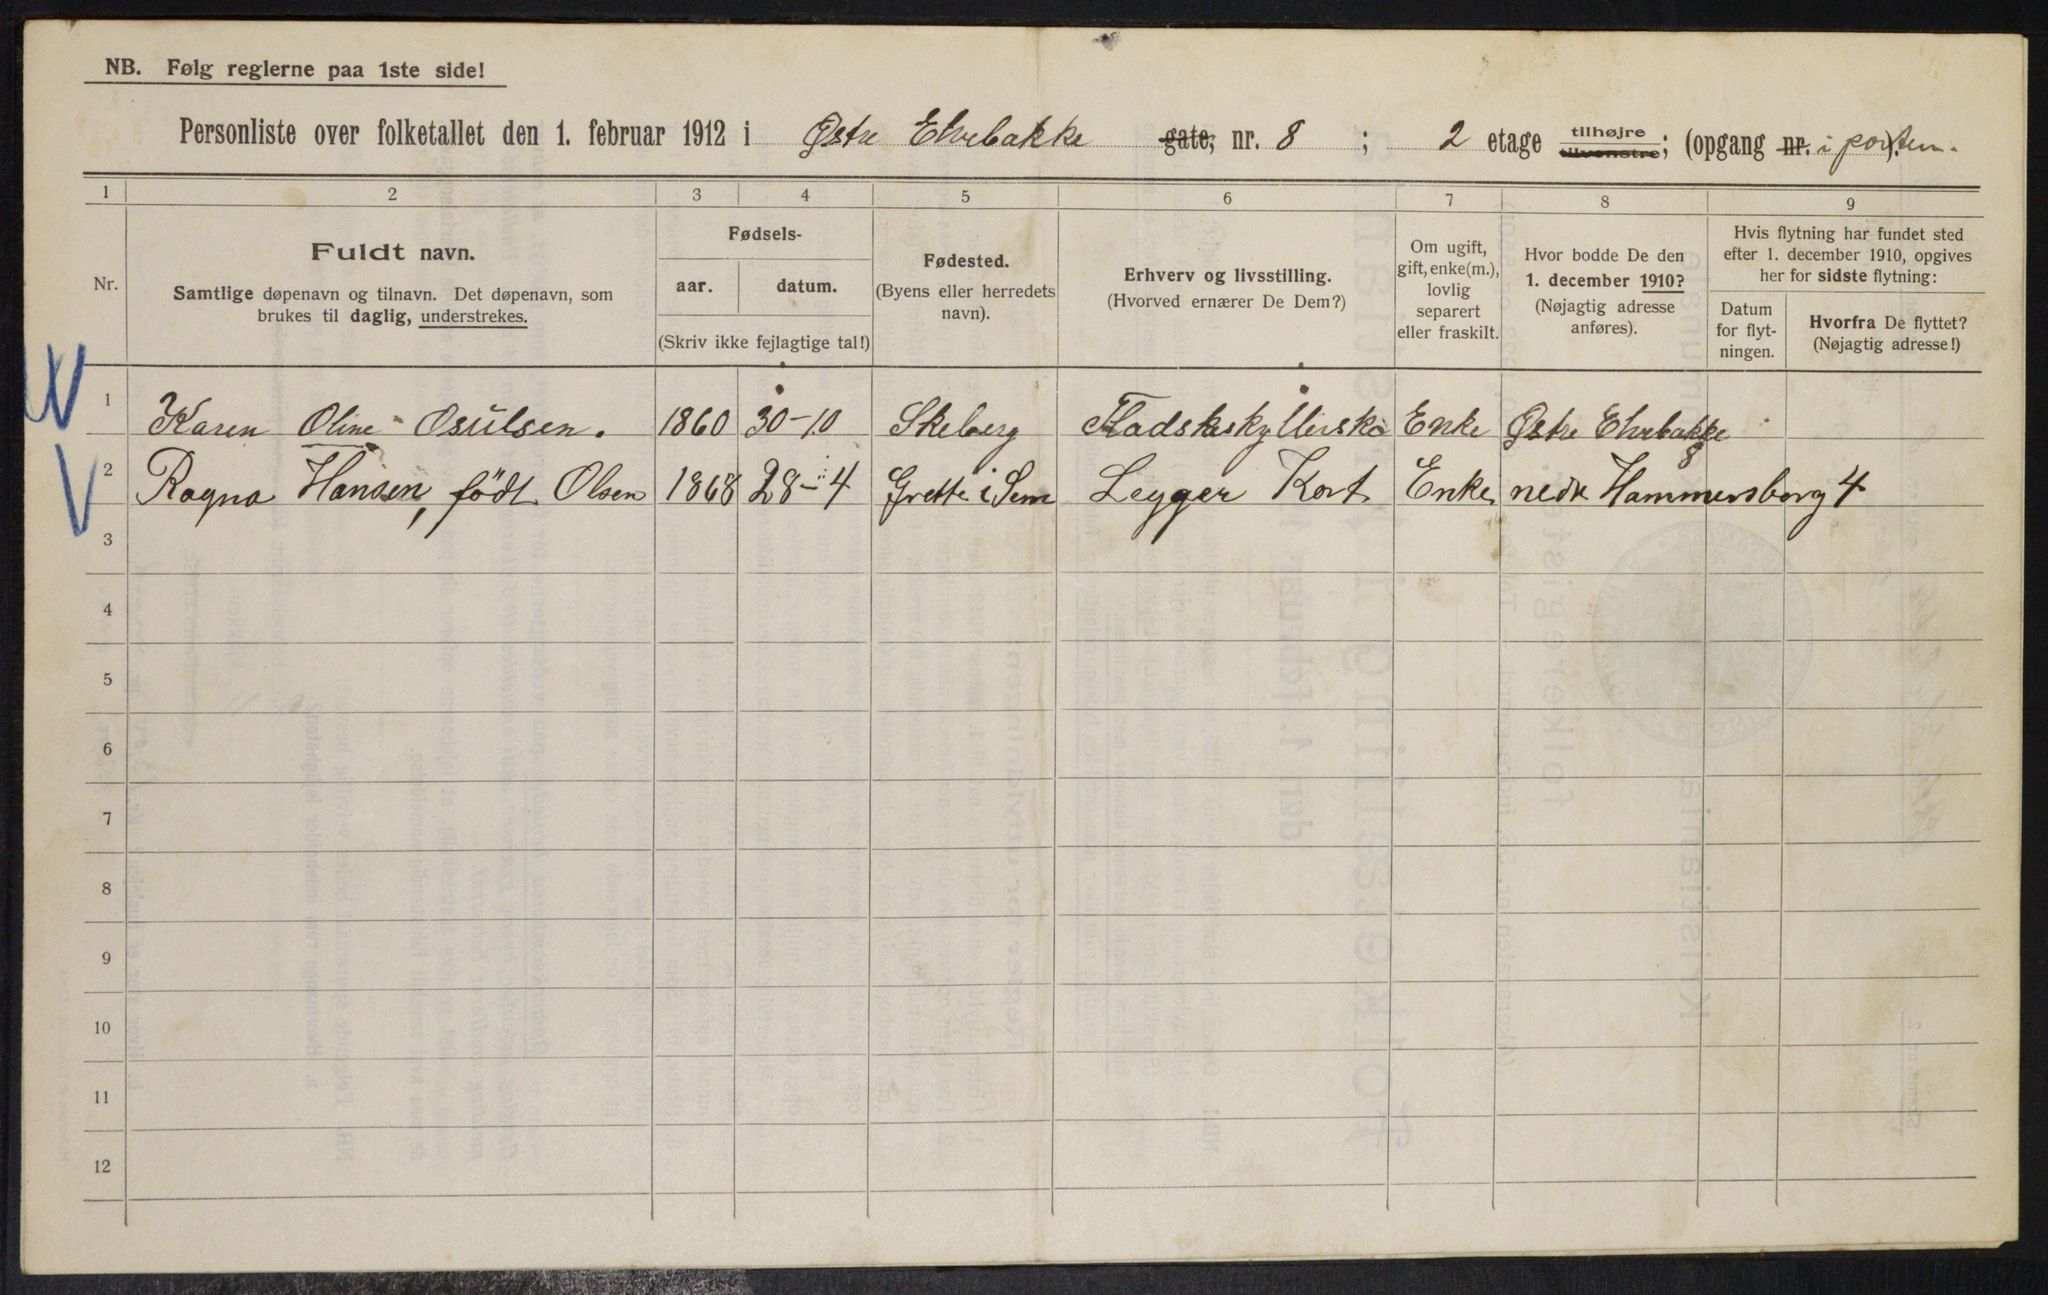 NB. Følg reglerne paa 1ste side!
Personliste over folketallet den 1. februar 1912 i Østre Elvebakke gate; nr. 8 ; 2 etage tilhøjre tilvenstre; (opgang nr. i porten).
1 2 3 4 5 6 7 8 9
Nr.
Fuldt navn.
Samtlige døpenavn og tilnavn. Det døpenavn, som
brukes til daglig, understrekes.
Fødsels-
aar. datum.
(Skriv ikke fejlagtige tal!)
Fødested.
(Byens eller herredets
navn).
Erhverv og livsstilling.
(Hvorved ernærer De Dem?)
Om ugift,
gift, enke(m.),
lovlig
separert
eller fraskilt.
Hvor bodde De den
1. december 1910?
(Nøjagtig adresse
anføres).
Hvis flytning har fundet sted
efter 1. december 1910, opgives
her for sidste flytning:
Datum
for flyt-
ningen.
Hvorfra De flyttet?
(Nøjagtig adresse!)
1 Karen Oline Osulsen. 1860 30-10 Skeberg Fladskeskyllerske Enke Østre Elvebakke 8
2 Ragna Hansen, født Olsen 1868 28-4 Grette i Sem Legger Kort Enke nedre Hammersborg 4
3
4
5
6
7
8
9
10
11
12